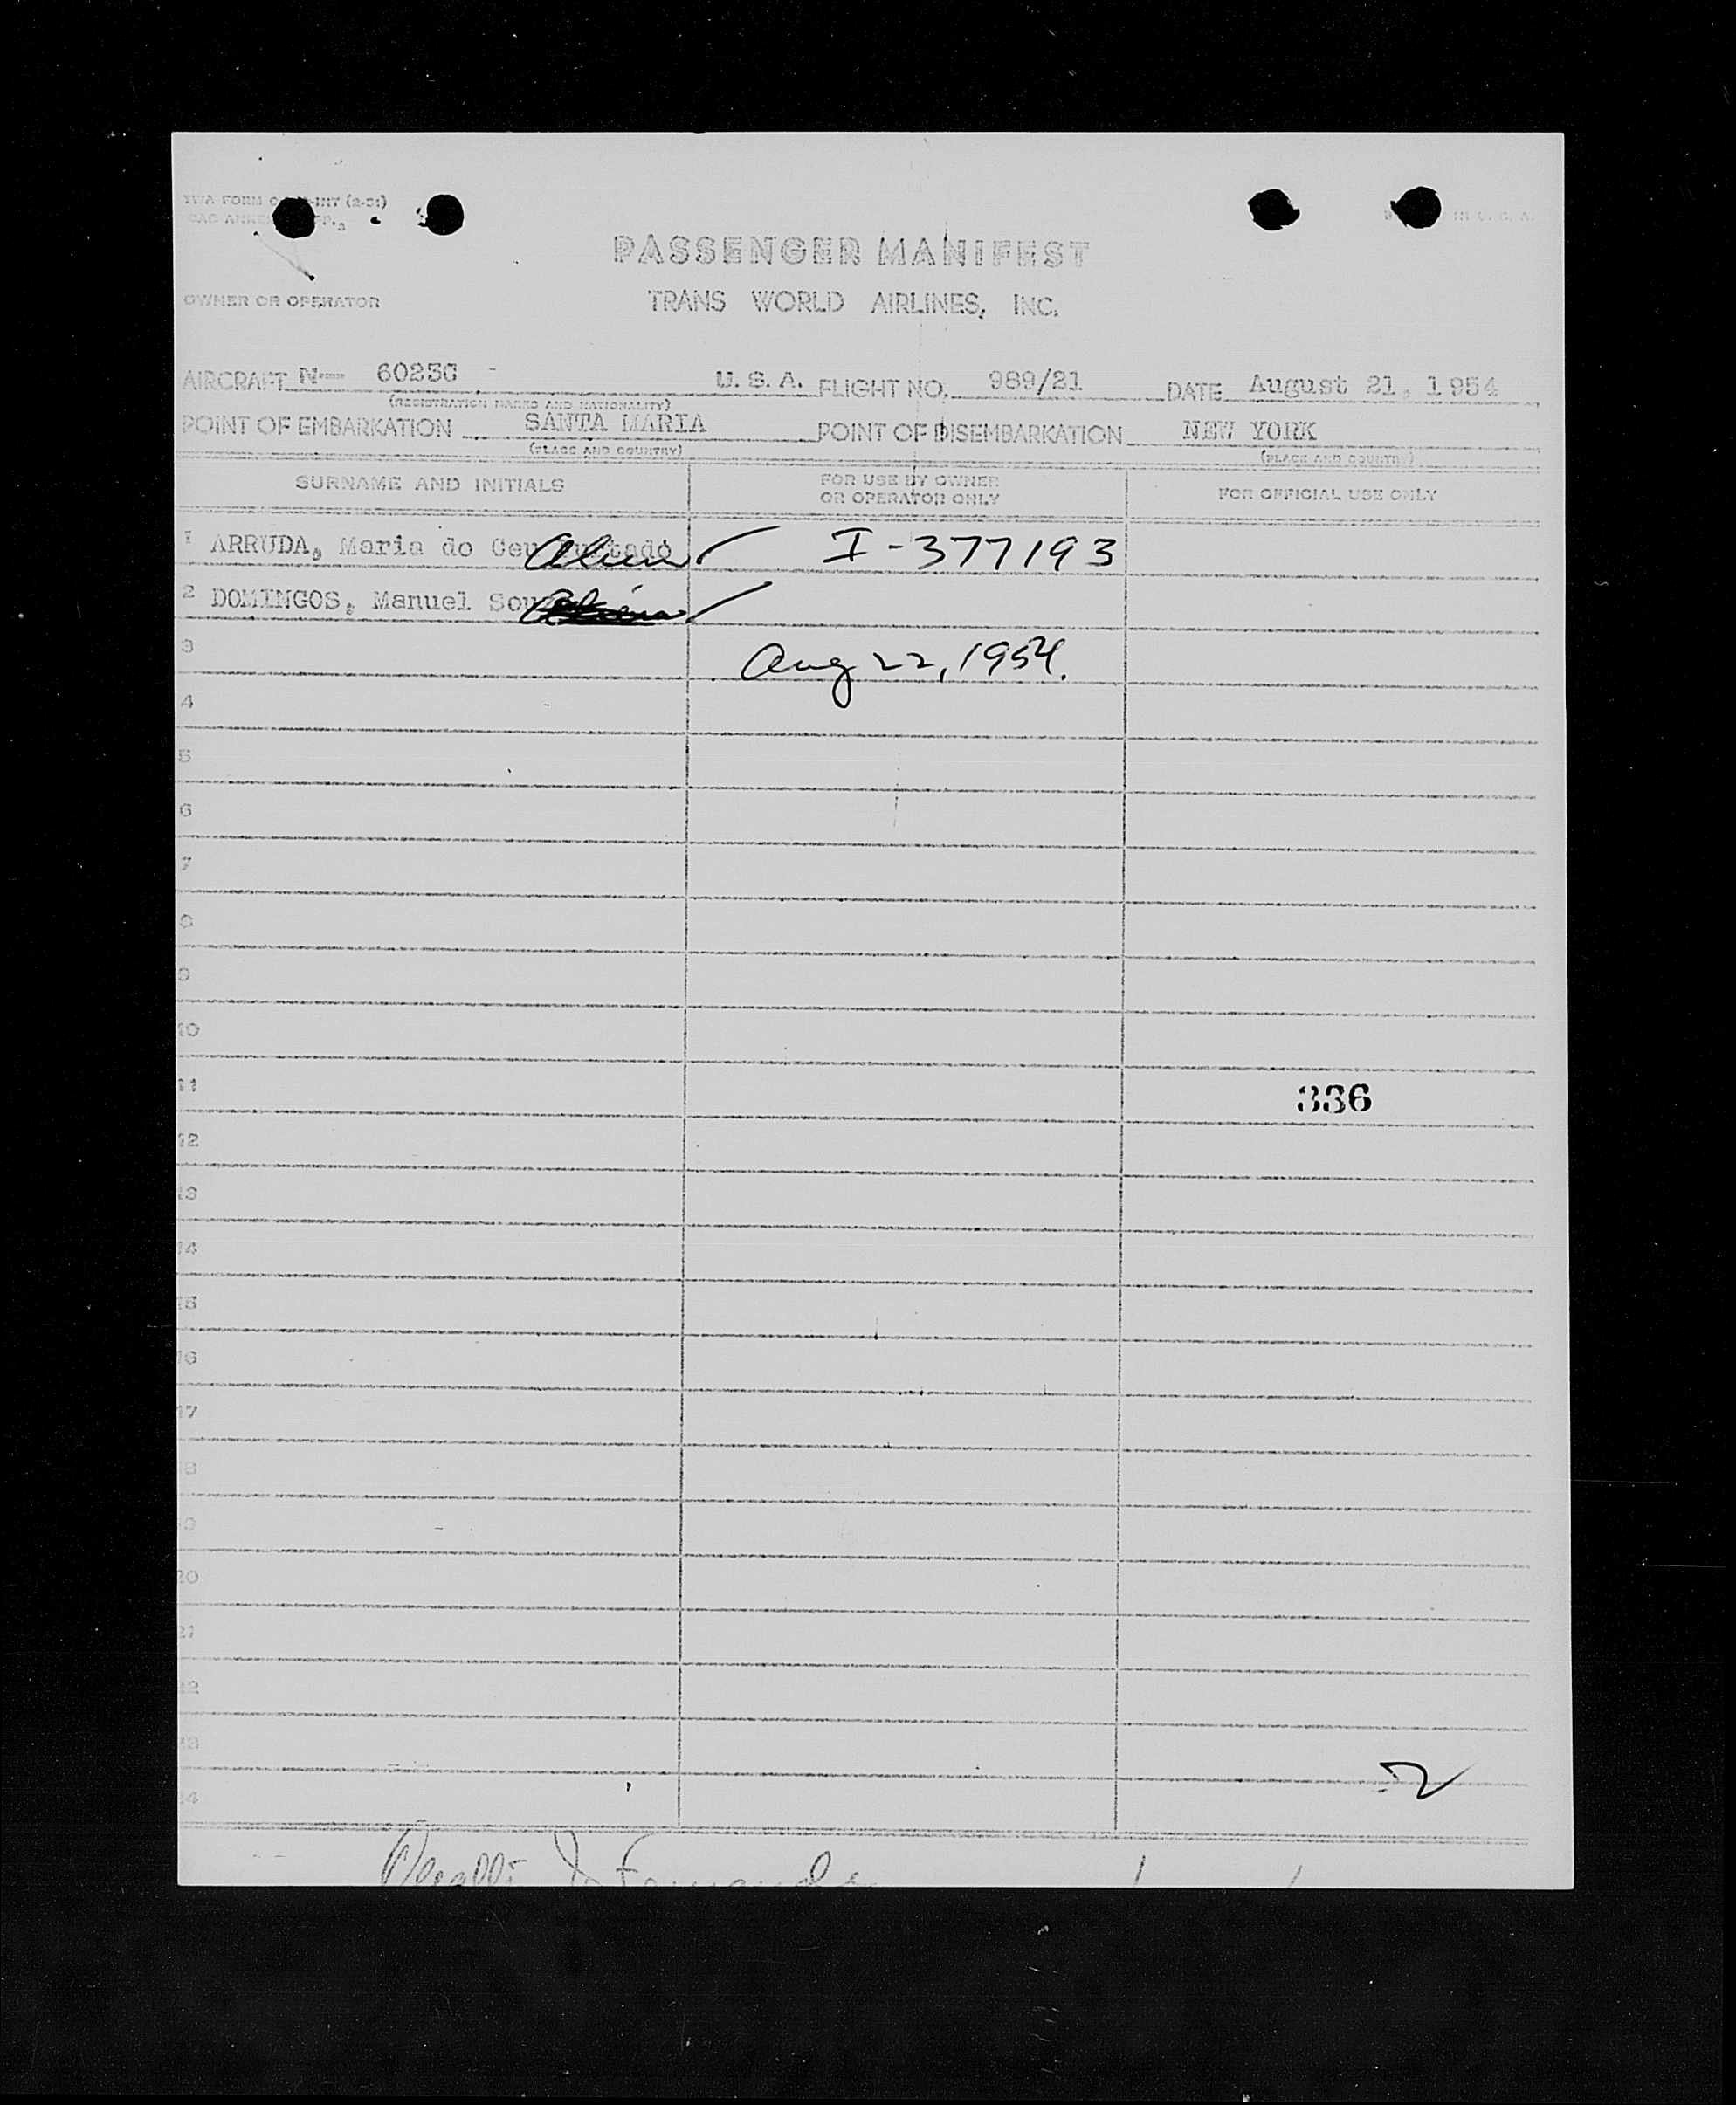 TWA FORM
PASSENGER MANIFEST
OWNER OR OPERATOR TRANS WORLD AIRLINES, INC.
AIRCRAFT N— U. S. A. FLIGHT NO. 989/21 DATE August 21, 1954
(REGISTRATION MARKS AND NATIONALITY)
POINT OF EMBARKATION SANTA MARIA POINT OF DISEMBARKATION NEW YORK
(PLACE AND COUNTRY) (PLACE AND COUNTRY)
SURNAME AND INITIALS FOR USE BY OWNER OR OPERATOR ONLY FOR OFFICIAL USE ONLY
1 ARRUDA, Maria do Ceu Alien I-377193
2 DOMINGOS, Manuel
3 Aug 22, 1954.
4
5
6
7
8
9
10
11 336
12
13
14
15
16
17
18
19
20
21
22
23
24
2